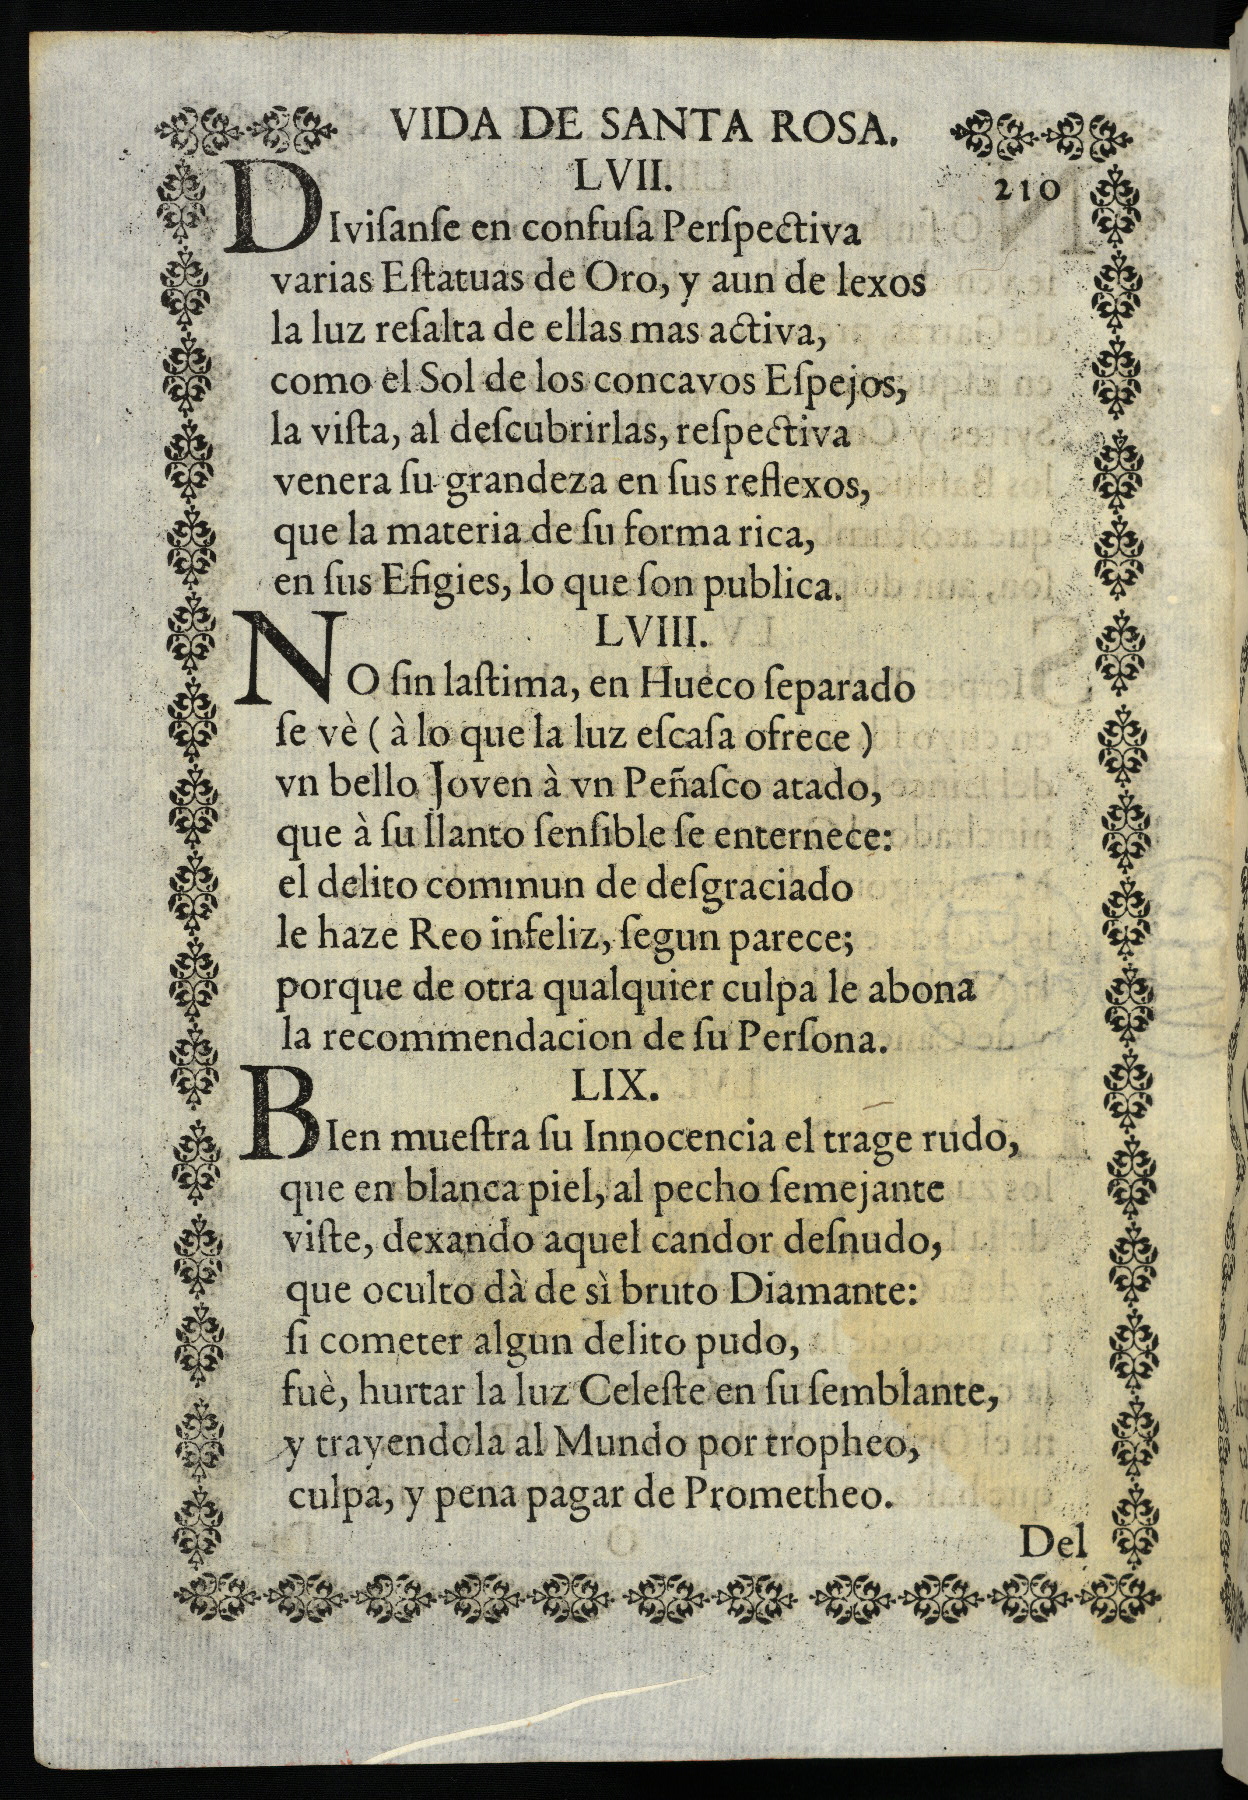 VIDA DE SANTA ROSA.
LVII.
210
DIviſanſe en confuſa Perſpectiva
varias Eſtatuas de Oro, y aun de lexos
la luz reſalta de ellas mas activa,
como el Sol de los concavos Eſpejos,
la viſta, al deſcubrirlas, reſpectiva
venera ſu grandeza en ſus reflexos,
que la materia de ſu forma rica,
en ſus Efigies, lo que ſon publica.
LVIII.
NO ſin laſtima, en Hueco ſeparado
ſe vè ( à lo que la luz eſcaſa ofrece )
vn bello Joven à vn Peñaſco atado,
que à ſu llanto ſenſible ſe enternece:
el delito commun de deſgraciado
le haze Reo infeliz, ſegun parece;
porque de otra qualquier culpa le abona
la recommendacion de ſu Perſona.
LIX.
BIen mueſtra ſu Innocencia el trage rudo,
que en blanca piel, al pecho ſemejante
viſte, dexando aquel candor deſnudo,
que oculto dà de sì bruto Diamante:
ſi cometer algun delito pudo,
fuè, hurtar la luz Celeſte en ſu ſemblante,
y trayendola al Mundo por tropheo,
culpa, y pena pagar de Prometheo.
Del